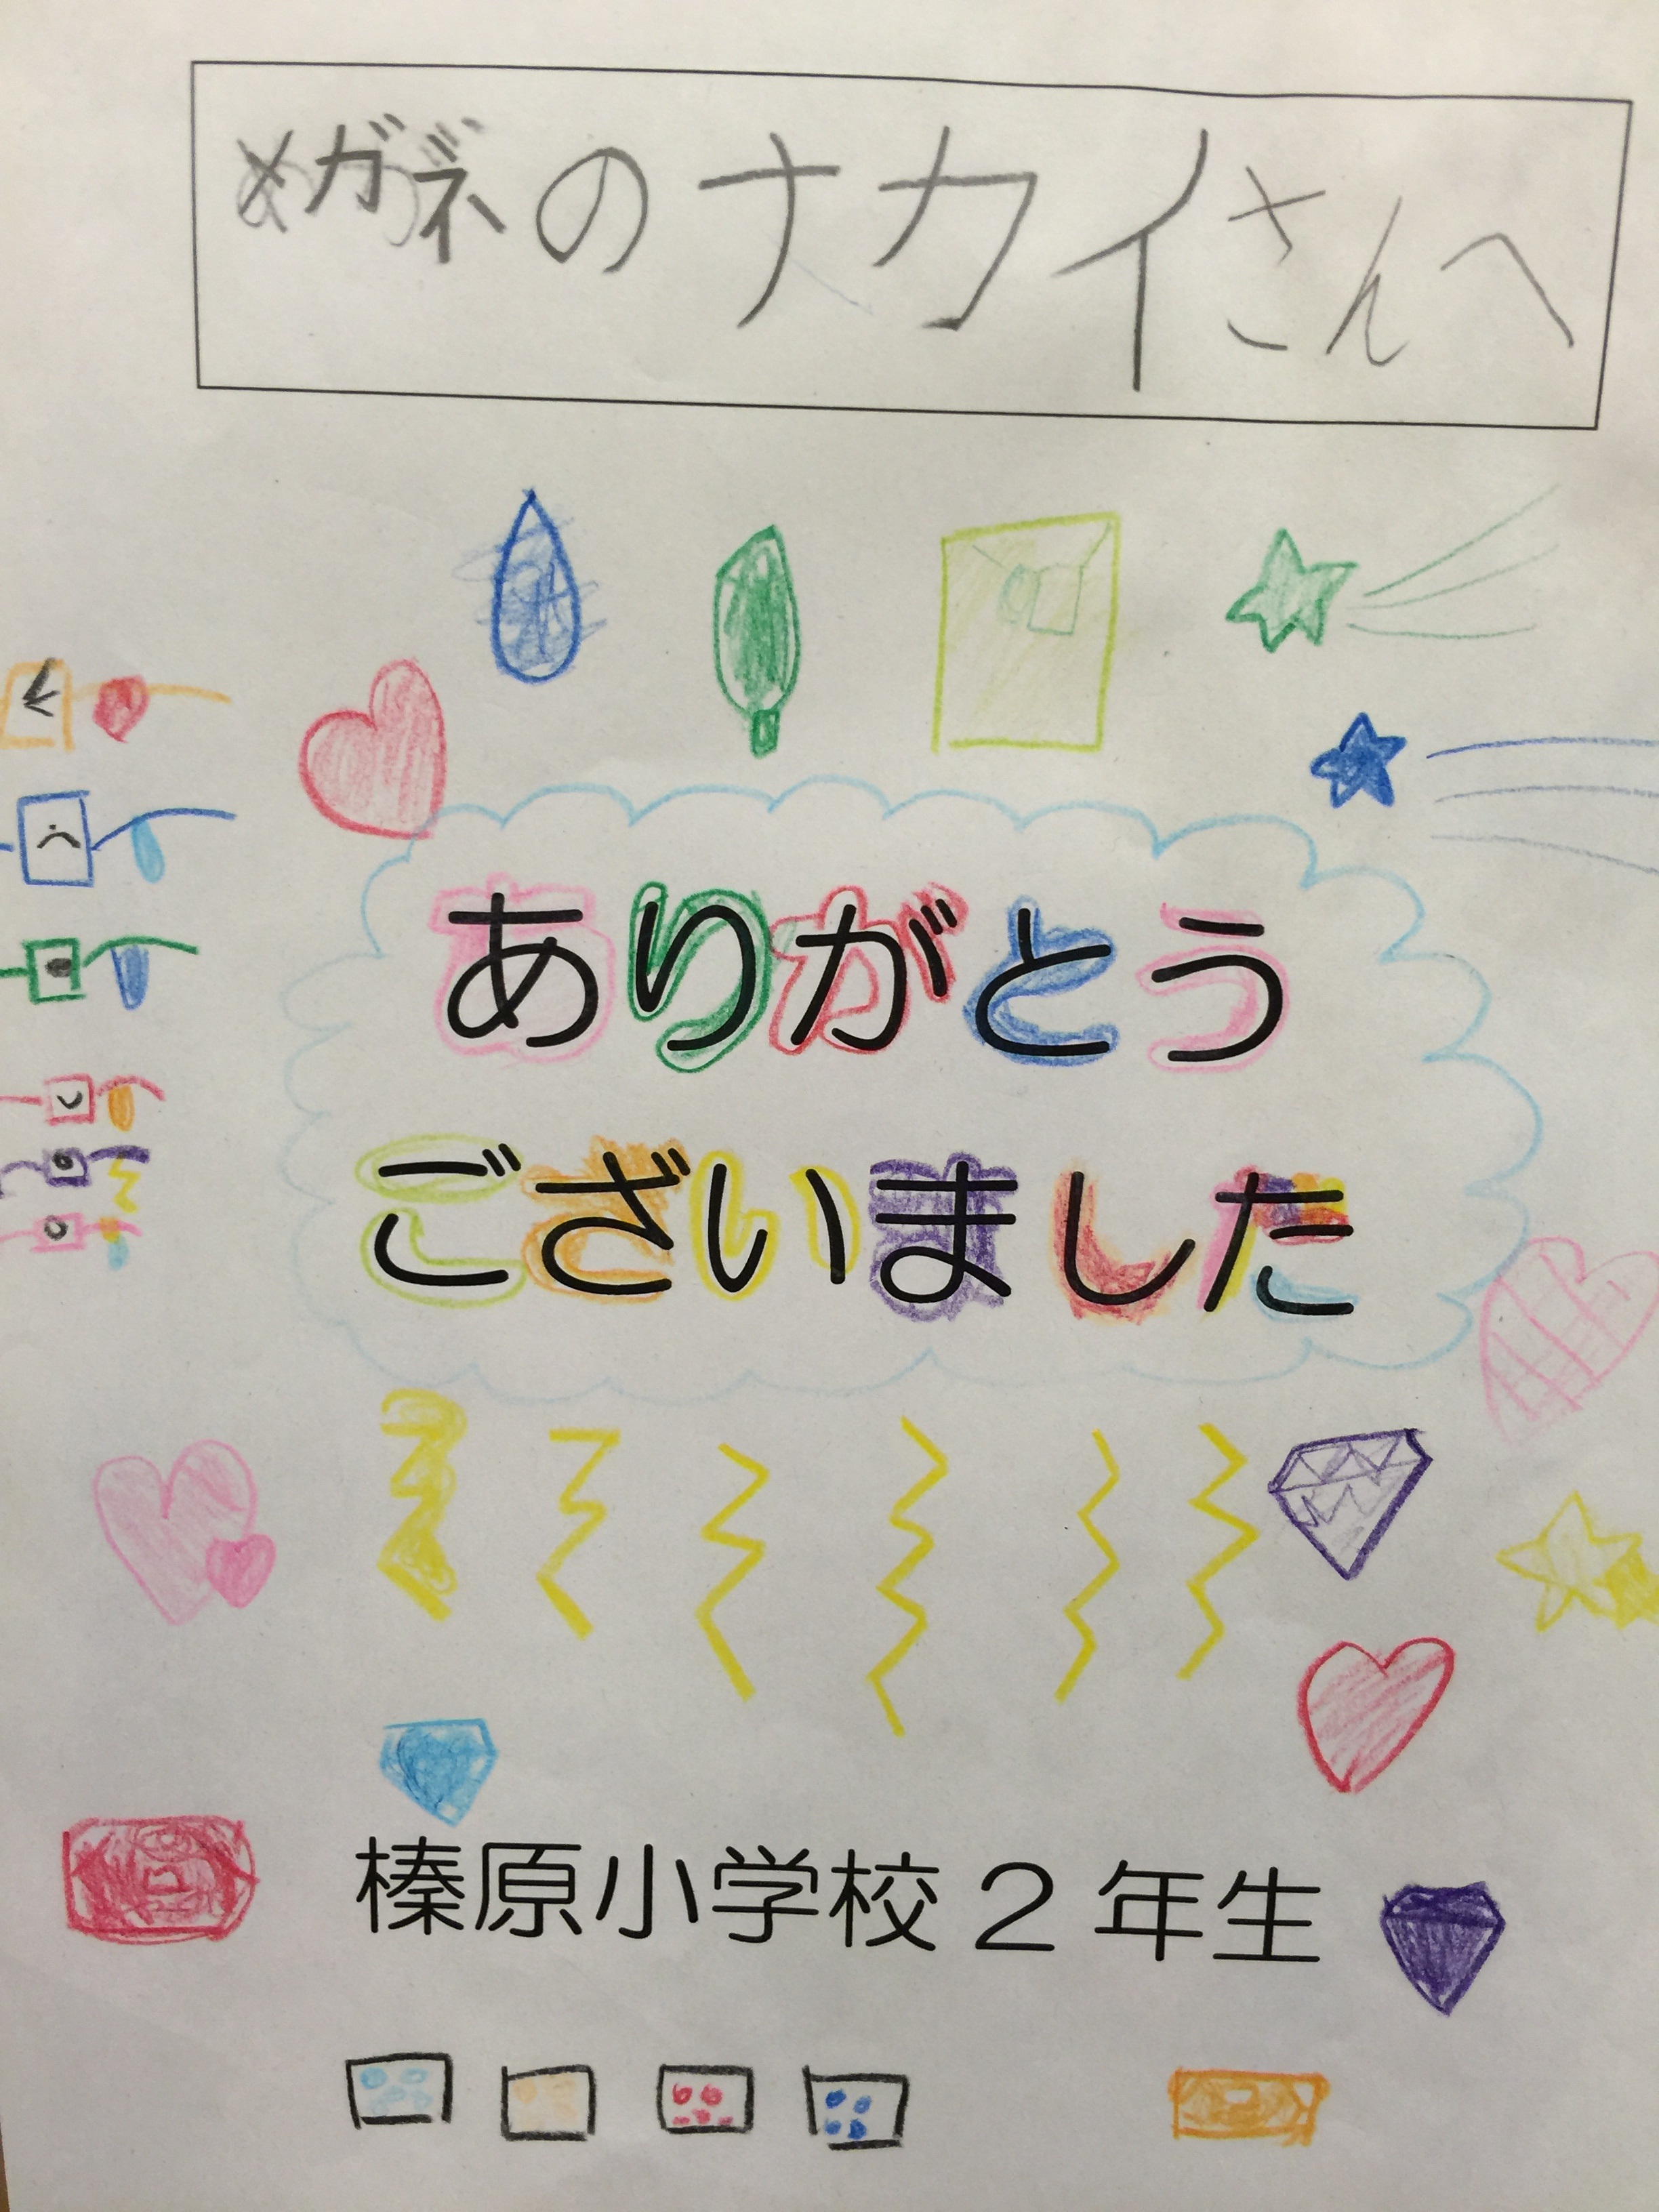 メガネのナカイさんへ
ありがとう
ございました
榛原小学校2年生